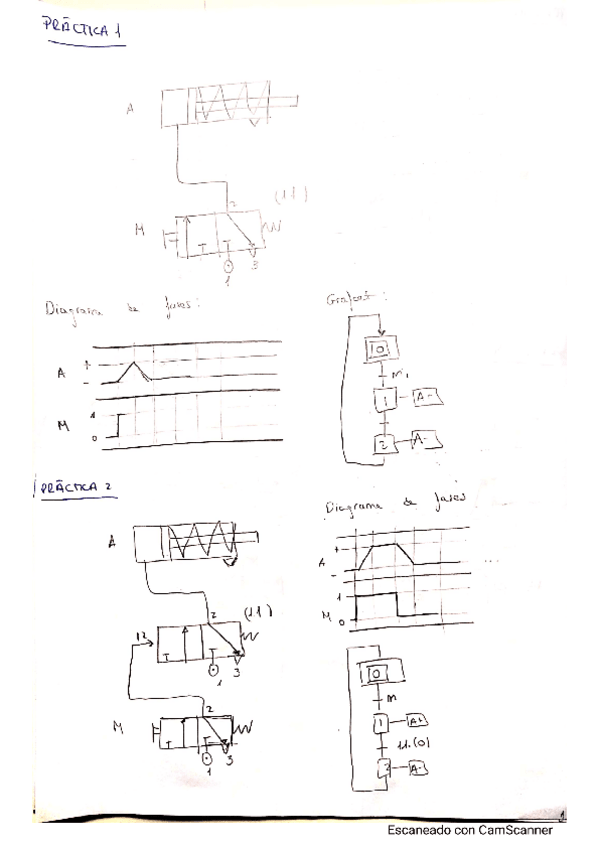 PRÁCTICA 1
A
2
(11)
M
1
3
Diagrama de fases:
Grafcet:
A
+
-
M
1
0
0
m,
1
A-
2
A-
PRÁCTICA 2
Diagrama de fases
A
+
-
...
M
1
0
A
2
(11)
12
1
3
M
2
1
3
0
m
1
A+
11.(0)
2
A-
1
Escaneado con CamScanner